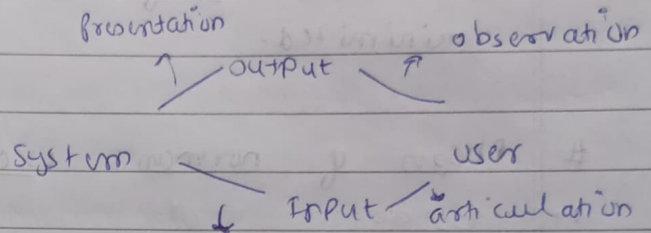 Presentation
observation
output
System
user
Input
articulation